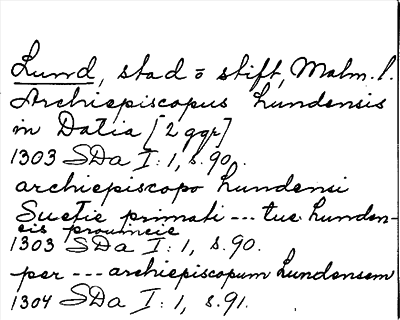 Lund, stad o stift, Malm. l.
Archiepiscopus Lundensis
in Datia [2 ggr]
1303 SDa I: 1, s. 90.
archiepiscopo Lundensi
Suetie primati --- tue Lunden-
cis prouincie
1303 SDa I: 1, s. 90.
per --- archiepiscopum Lundensem
1304 SDa I: 1, s. 91.